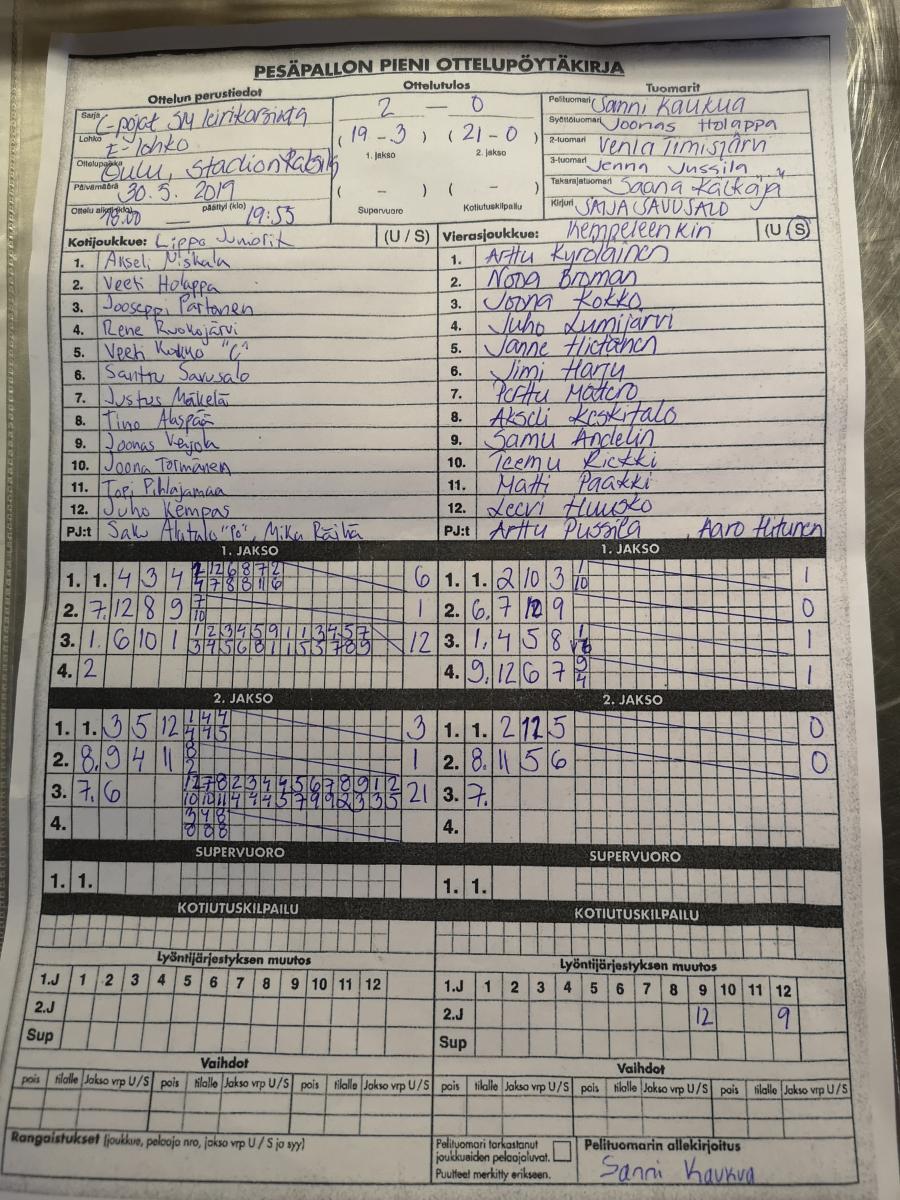 PESÄPALLON PIENI OTTELUPÖYTÄKIRJA
Ottelun perustiedot
Sarja C-pojat SM leirikarsinta
Lohko E-lohko
Ottelupaikka Oulu, Stadion Raksila
Päivämäärä 30.5. 2019
Ottelu alkoi (klo) 18.00 — päättyi (klo) 19:55
Ottelutulos
2 — 0
( 19 - 3 ) ( 21 - 0 )
1. jakso 2. jakso
( - ) ( - )
Supervuoro Kotiutuskilpailu
Tuomarit
Pelituomari Sanni Kaukua
Syöttötuomari Joonas Holappa
2-tuomari Venla Timisjärvi
3-tuomari Jenna Jussila
Takarajatuomari Saana Kälkäjä
Kirjuri SAIJA SAVUSALO
Kotijoukkue: Lippo Juniorit (U / S)
1. Akseli Niskala
2. Veeti Holappa
3. Jooseppi Partanen
4. Rene Ruokojärvi
5. Veeti Kokko "C"
6. Santtu Savusalo
7. Justus Mäkelä
8. Tino Alaspää
9. Joonas Veijola
10. Joona Törmänen
11. Topi Pihlajamaa
12. Juho Kempas
PJ:t Saku Alatalo "Po", Mika Räihä
Vierasjoukkue: Kempeleen Kiri (U / S)
1. Arttu Kyröläinen
2. Nooa Broman
3. Joona Kokko
4. Juho Lumijärvi
5. Janne Hietanen
6. Jimi Harju
7. Perttu Mattero
8. Akseli Keskitalo
9. Samu Andelin
10. Teemu Riekki
11. Matti Paakki
12. Leevi Huusko
PJ:t Arttu Pussila Aaro Hiltunen
1. JAKSO
1. 1. 4 3 4 6
2. 7. 12 8 9 7 10 1
3. 1. 6 10 1 1 2 3 4 5 9 1 1 3 4 5 7 12
3 4 5 6 8 1 1 5 5 7 8 9
4. 2
2. JAKSO
1. 1. 3 5 12 1 4 4 3
4 4 5
2. 8. 9 4 11 8 1
2
3. 7. 6 12 7 8 2 3 4 4 5 6 7 8 9 1 2 21
10 10 11 4 4 4 5 7 9 9 2 3 3 5
4. 3 4 8
8 8 8
SUPERVUORO
1. 1.
KOTIUTUSKILPAILU
Lyöntijärjestyksen muutos
1.J 1 2 3 4 5 6 7 8 9 10 11 12
2.J
Sup
Vaihdot
pois tilalle Jakso vrp U/S pois tilalle Jakso vrp U/S pois tilalle Jakso vrp U/S
1. JAKSO
1. 1. 2 10 3 1 1
10
2. 6. 7 12 9 0
3. 1. 4 5 8 1
4. 9. 12 6 7 9 1
4
2. JAKSO
1. 1. 2 12 5 0
2. 8. 11 5 6 0
3. 7.
4.
SUPERVUORO
1. 1.
KOTIUTUSKILPAILU
Lyöntijärjestyksen muutos
1.J 1 2 3 4 5 6 7 8 9 10 11 12
2.J 12 9
Sup
Vaihdot
pois tilalle Jakso vrp U/S pois tilalle Jakso vrp U/S pois tilalle Jakso vrp U/S
Rangaistukset (joukkue, pelaaja nro, jakso vrp U / S ja syy)
Pelituomari tarkastanut
joukkueiden pelaajaluvat.
Puutteet merkitty erikseen.
Pelituomarin allekirjoitus
Sanni Kaukua